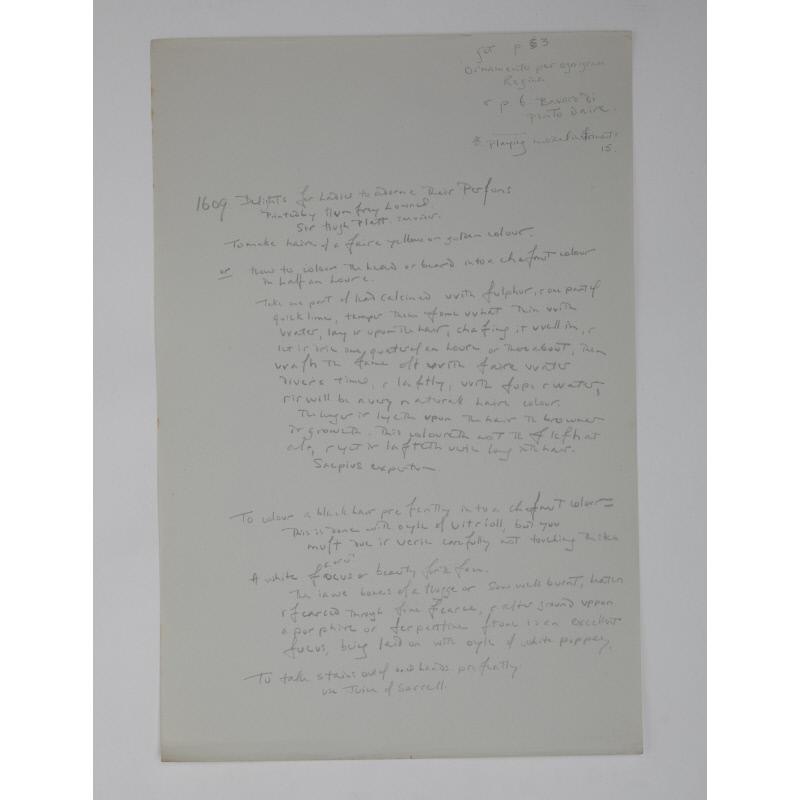 get p 53
Ornamento per ogni gran
Regina
& p 6
* Playing musical instruments
15.
1609 Delights for Ladies to adorne their Perfons
Printed by Humfrey Lownes
Sir Hugh Platt
To make haire of a faire yellow or golden colour.
or How to colour the head or beard into a chefnut colour
in half an houre.
Take one part of lead calcined with fulphur, & one part of
quick lime, temper them fome what thin with
water, lay it upon the hair, chafing it well in, &
let it drie one quarter of an houre or thereabout, then
wafh the fame off with faire water
divers times, & laftly, with fope & water,
& it will be a very naturall haire colour.
The longer it lyeth upon the hair the browner
it groweth. This coloureth not the flefh at
all, & yet it lafteth verie long in the hair.
Saepius expertum
To colour a black hair prefently into a chefnut colour
This is done with oyle of vitrioll, but you
muft doe it verie carefully not touching the skin
A white focus or beauty for the face.
The iawe bones of a Hogge or Sow well burnt, beaten
& fearced through fine fearce, & after ground uppon
a porphire or ferpentine ftone is an excellent
focus, being laid on with oyle of white poppey.
To take stains out of one's hands prefently
use Juice of Sorrell.